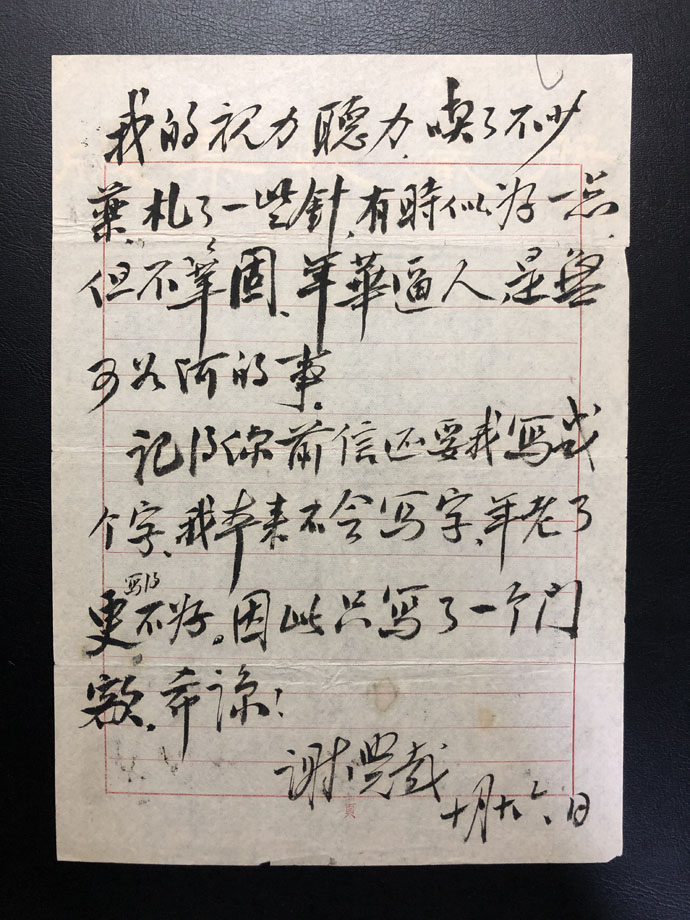 我的视力聽力,喫了不少
藥,札了一些針,有時似好一点,
但不鞏固、年華逼人,是無
可如何的事。
记得你前信还要我写几
个字,我本来不会写字,年老了
更写得不好。因此只写了一个门
额,希谅!
谢
十月十六日